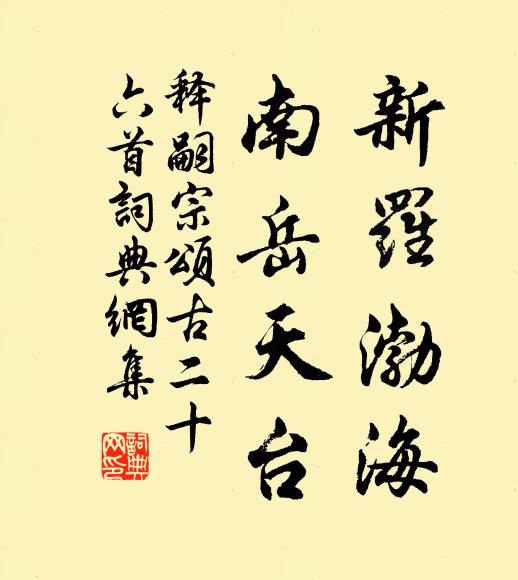 新羅渤海
南岳天台
释嗣宗頌古二十
六首詞典網集
詞典
网印